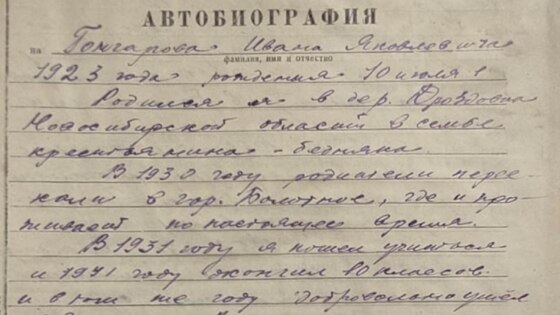 АВТОБИОГРАФИЯ
на Гончарова Ивана Яковлевича
фамилия, имя и отчество
1923 года рождения 10 июля
Родился я в дер. Дроздовка
Новосибирской области в семье
крестьянина-бедняка.
В 1930 году родители перее-
хали в гор. Болотное, где и про-
живают по настоящее время.
В 1931 году я пошел учиться
и 1941 году окончил 10 классов.
и в том же году добровольно ушёл